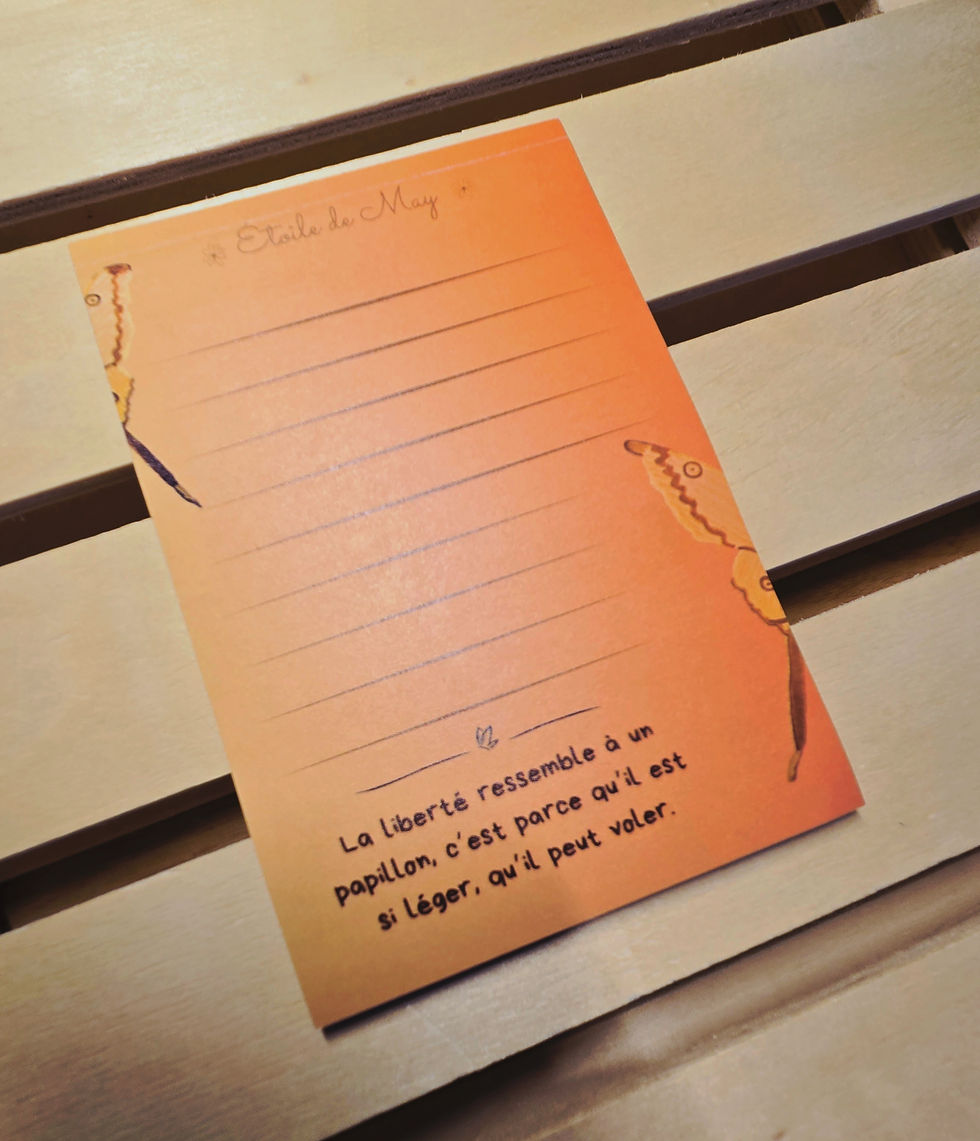 Étoile de May
La liberté ressemble à un
papillon, c'est parce qu'il est
si léger, qu'il peut voler.